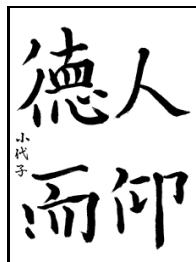 人仰
德而
小代子